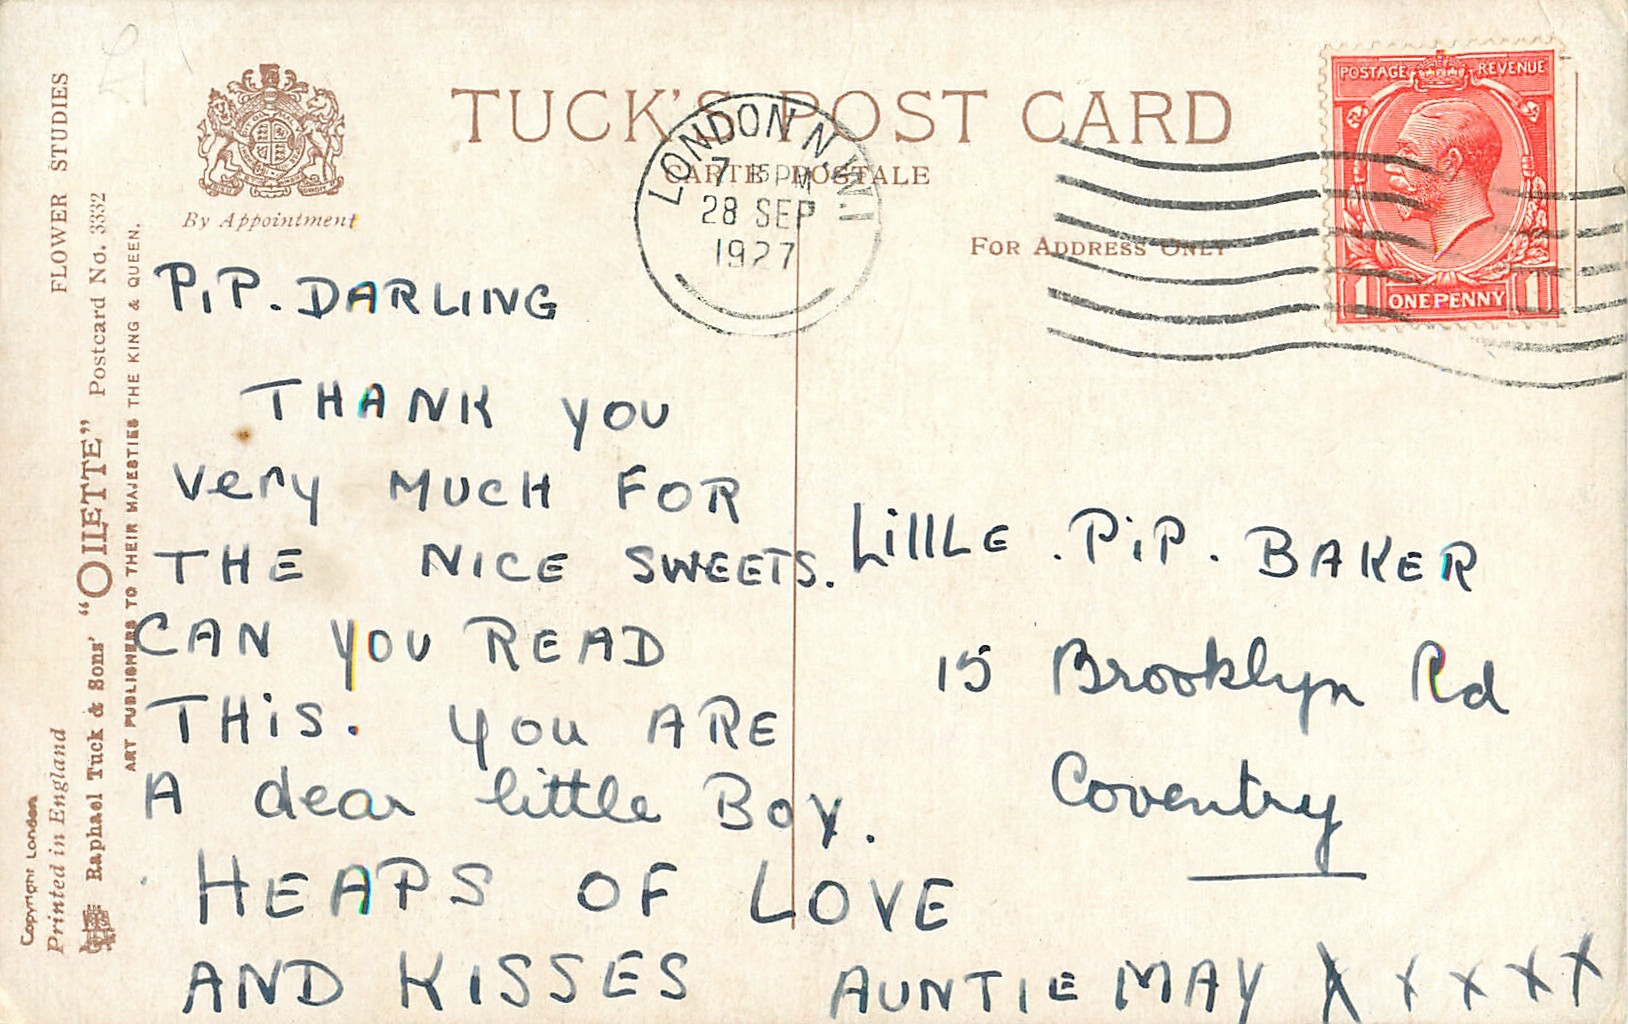 TUCK'S POST CARD
CARTE POSTALE
By Appointment
FOR ADDRESS ONLY
LONDON N.W.1
7 15 PM
28 SEP
1927
POSTAGE REVENUE
1 ONE PENNY 1
FLOWER STUDIES
Raphael Tuck & Sons' "OILETTE" Postcard No. 3332
ART PUBLISHERS TO THEIR MAJESTIES THE KING & QUEEN.
Copyright London
Printed in England
PiP. DARLING
THANK YOU
Very MUCH FOR
THE NICE SWEETS.
CAN YOU READ
THiS. YOU ARE
A dear little BOY.
HEAPS OF LOVE
AND KISSES AUNTIE MAY X X X X X
LittLE . PiP . BAKER
15 Brooklyn Rd
Coventry